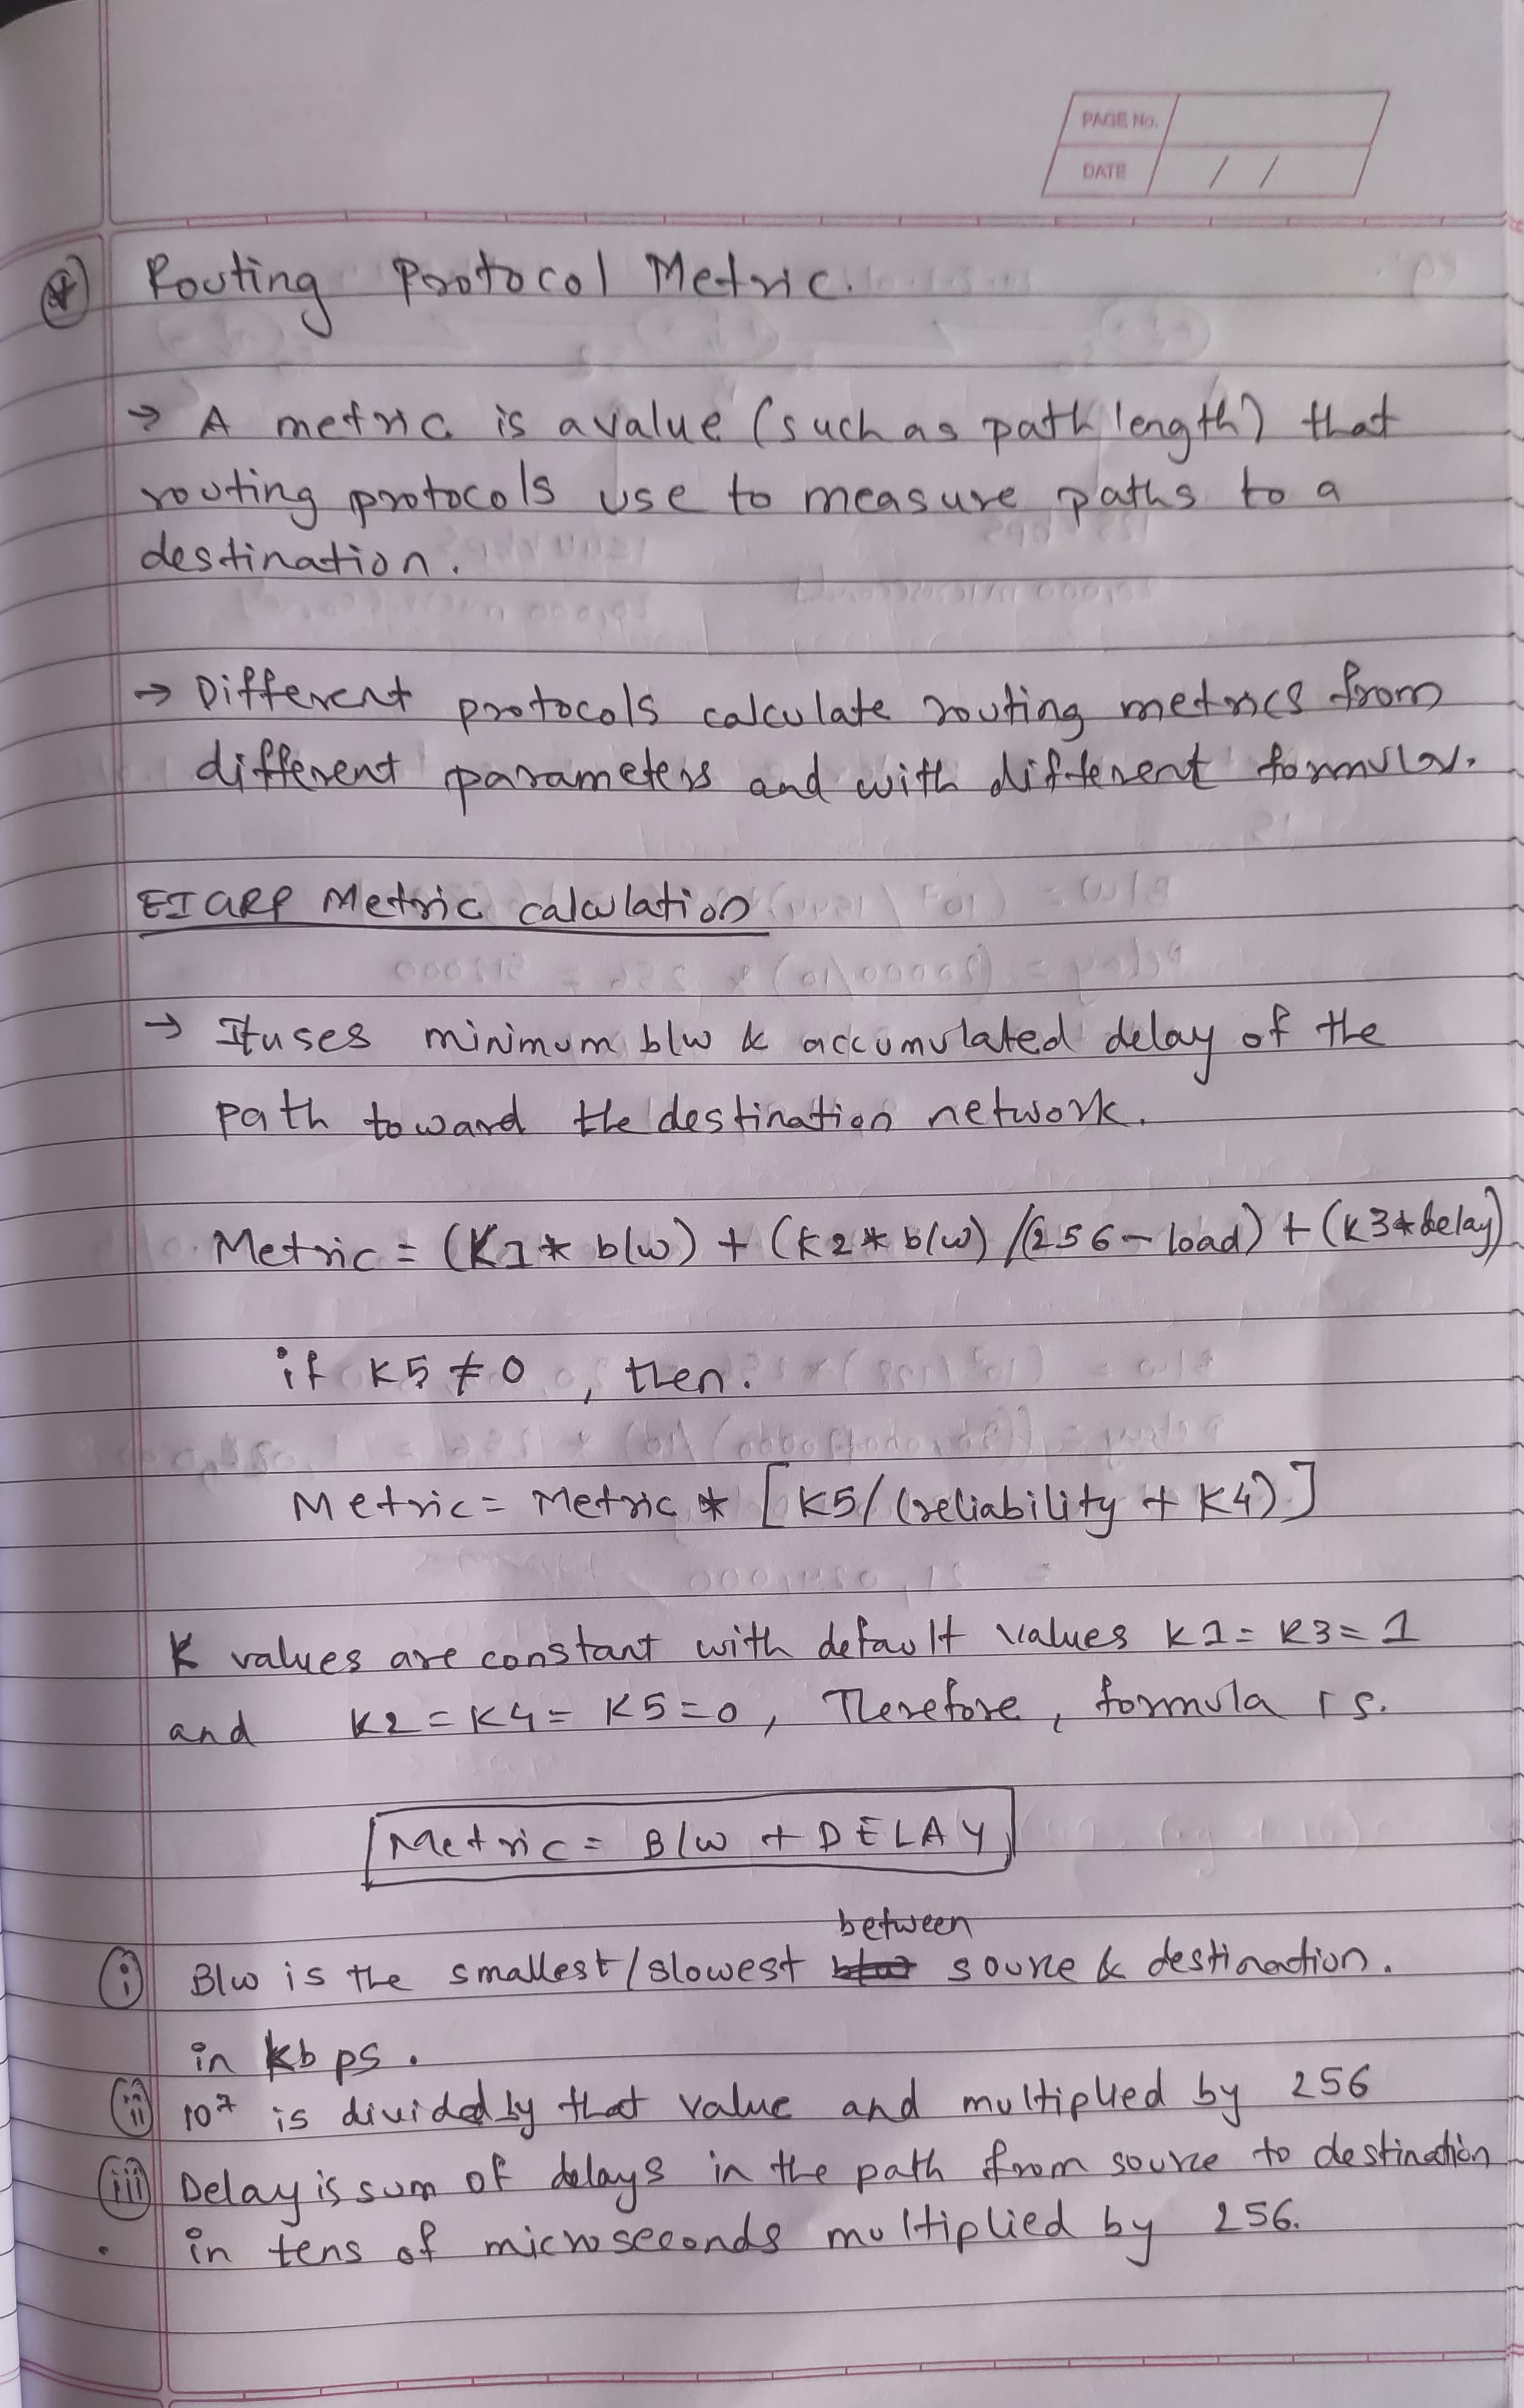 PAGE No.
DATE / /
Routing Protocol Metric.
→ A metric is a value (such as path length) that
routing protocols use to measure paths to a
destination.
→ Different protocols calculate routing metrics from
different parameters and with different formulas.
EIGRP Metric calculation
→ It uses minimum b/w & accumulated delay of the
path toward the destination network.
Metric = (K1 * b/w) + (K2 * b/w) / (256 - load) + (K3 * delay)
if K5 ≠ 0, then.
Metric = Metric * [K5/(reliability + K4)]
K values are constant with default values K1 = K3 = 1
and K2 = K4 = K5 = 0, Therefore, formula is.
Metric = B/W + DELAY
between
(i) B/w is the smallest/slowest source & destination.
in kbps.
(ii) 10⁷ is divided by that value and multiplied by 256
(iii) Delay is sum of delays in the path from source to destination
in tens of microseconds multiplied by 256.